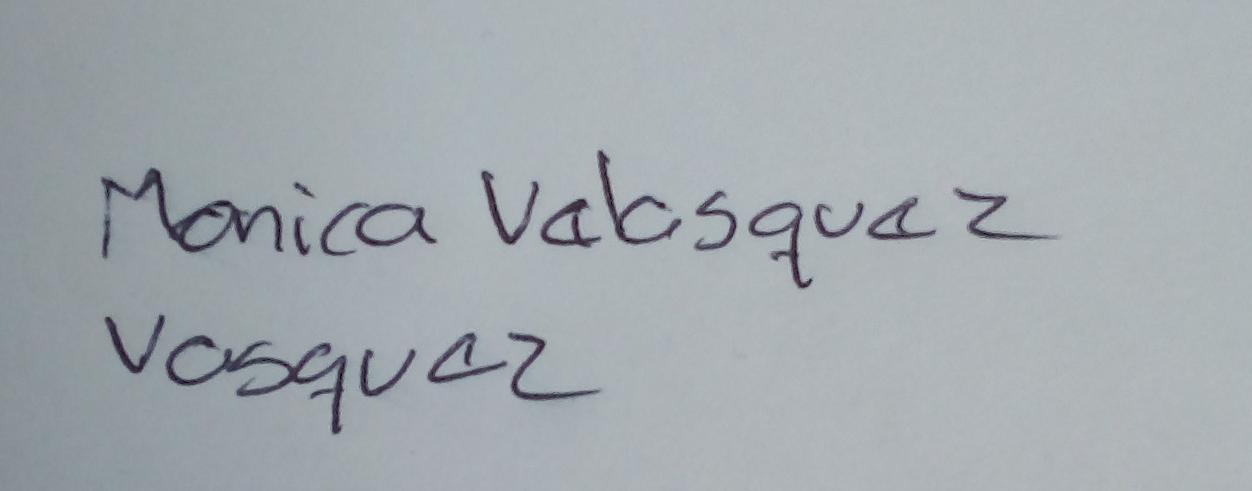 Monica Velasquez
Vasquez